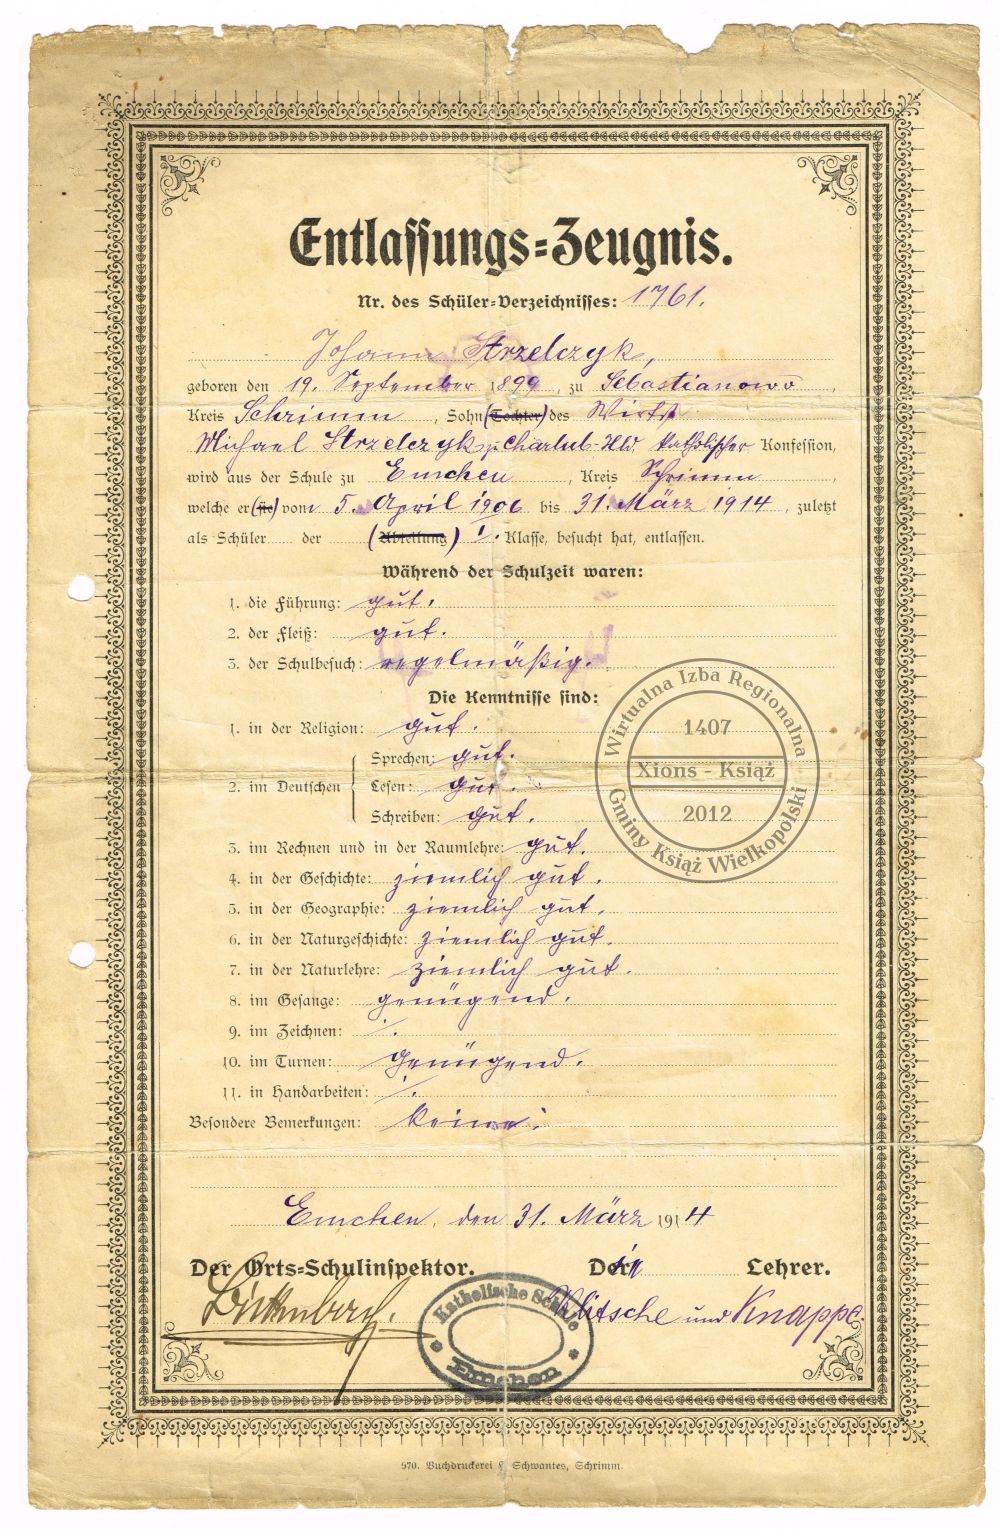 Entlassungs-Zeugnis.
Nr. des Schüler-Verzeichnisses: 1761.
Johann Strzelczyk,
geboren den 19. September 1899, zu Sebastianowo,
Kreis Schrimm, Sohn (Tochter) des Wirts
Michael Strzelczyk katholischer Konfession,
wird aus der Schule zu Emchen, Kreis Schrimm
welche er (sie) vom 5. April 1906 bis 31. März 1914, zuletzt
als Schüler der (Abteilung) 1. Klasse, besucht hat, entlassen.
Während der Schulzeit waren:
1. die Führung: gut.
2. der Fleiß: gut.
3. der Schulbesuch: regelmäßig.
Die Kenntnisse sind:
1. in der Religion: gut.
Sprechen: gut.
2. im Deutschen Lesen: gut.
Schreiben: gut.
3. im Rechnen und in der Raumlehre: gut.
4. in der Geschichte: ziemlich gut.
5. in der Geographie: ziemlich gut.
6. in der Naturgeschichte: ziemlich gut.
7. in der Naturlehre: ziemlich gut.
8. im Gesange: genügend.
9. im Zeichnen: ·/.
10. im Turnen: genügend.
11. in Handarbeiten: ·/.
Besondere Bemerkungen: keine.
Emchen, den 31. März 1914
Der Orts-Schulinspektor. Die Lehrer.
und Knappe.
Katholische Schule
Emchen
Wirtualna Izba Regionalna
1407
Xions - Książ
2012
Gminy Książ Wielkopolski
970. Buchdruckerei L. Schwantes, Schrimm.